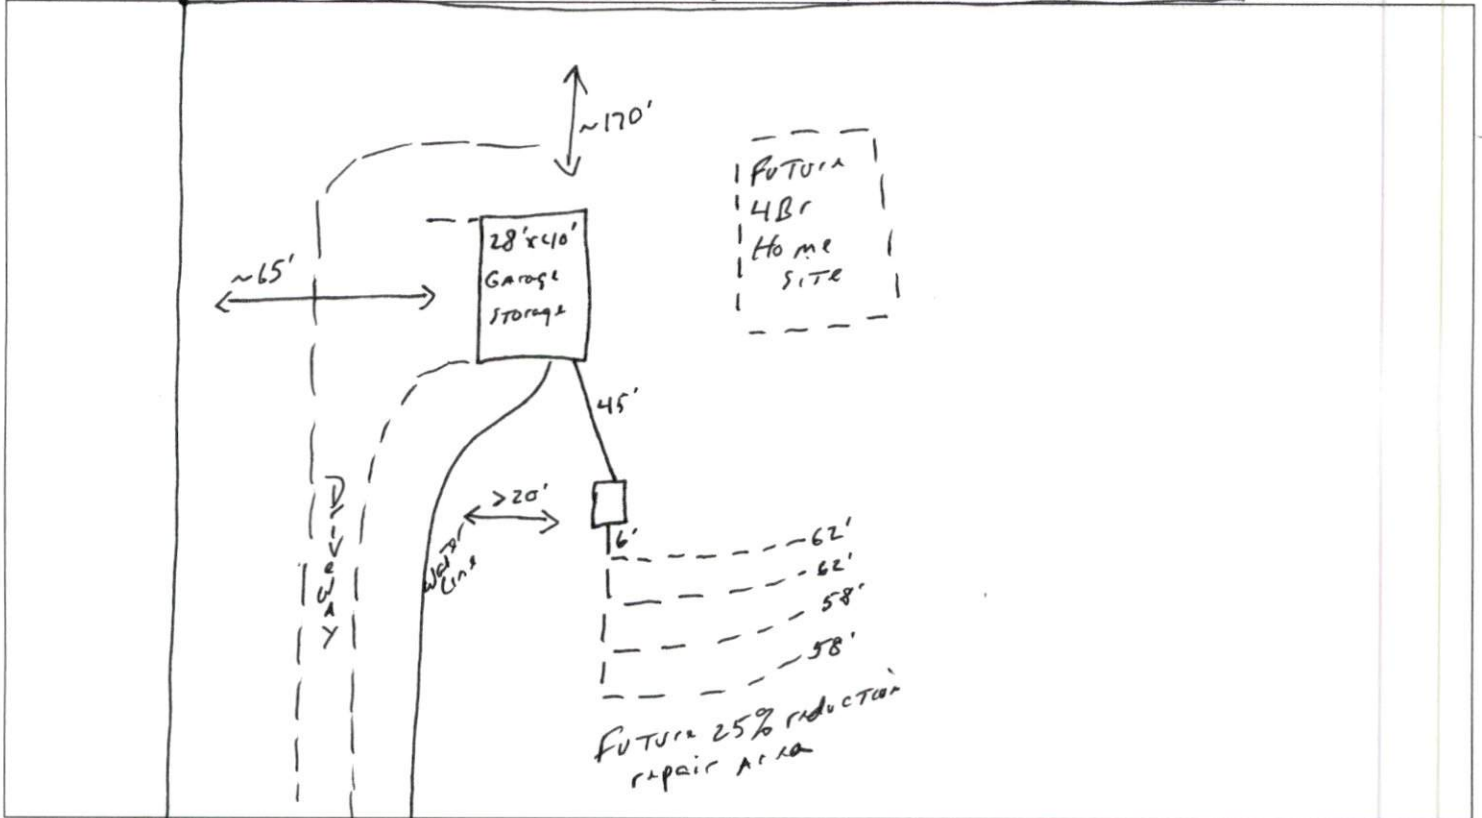 ~170'
Future
4Br
Home
Site
28'x40'
Garage
Storage
~65'
45'
Driveway
>20'
Water
Line
6'
62'
62'
58'
58'
Future 25% reduction
repair Area